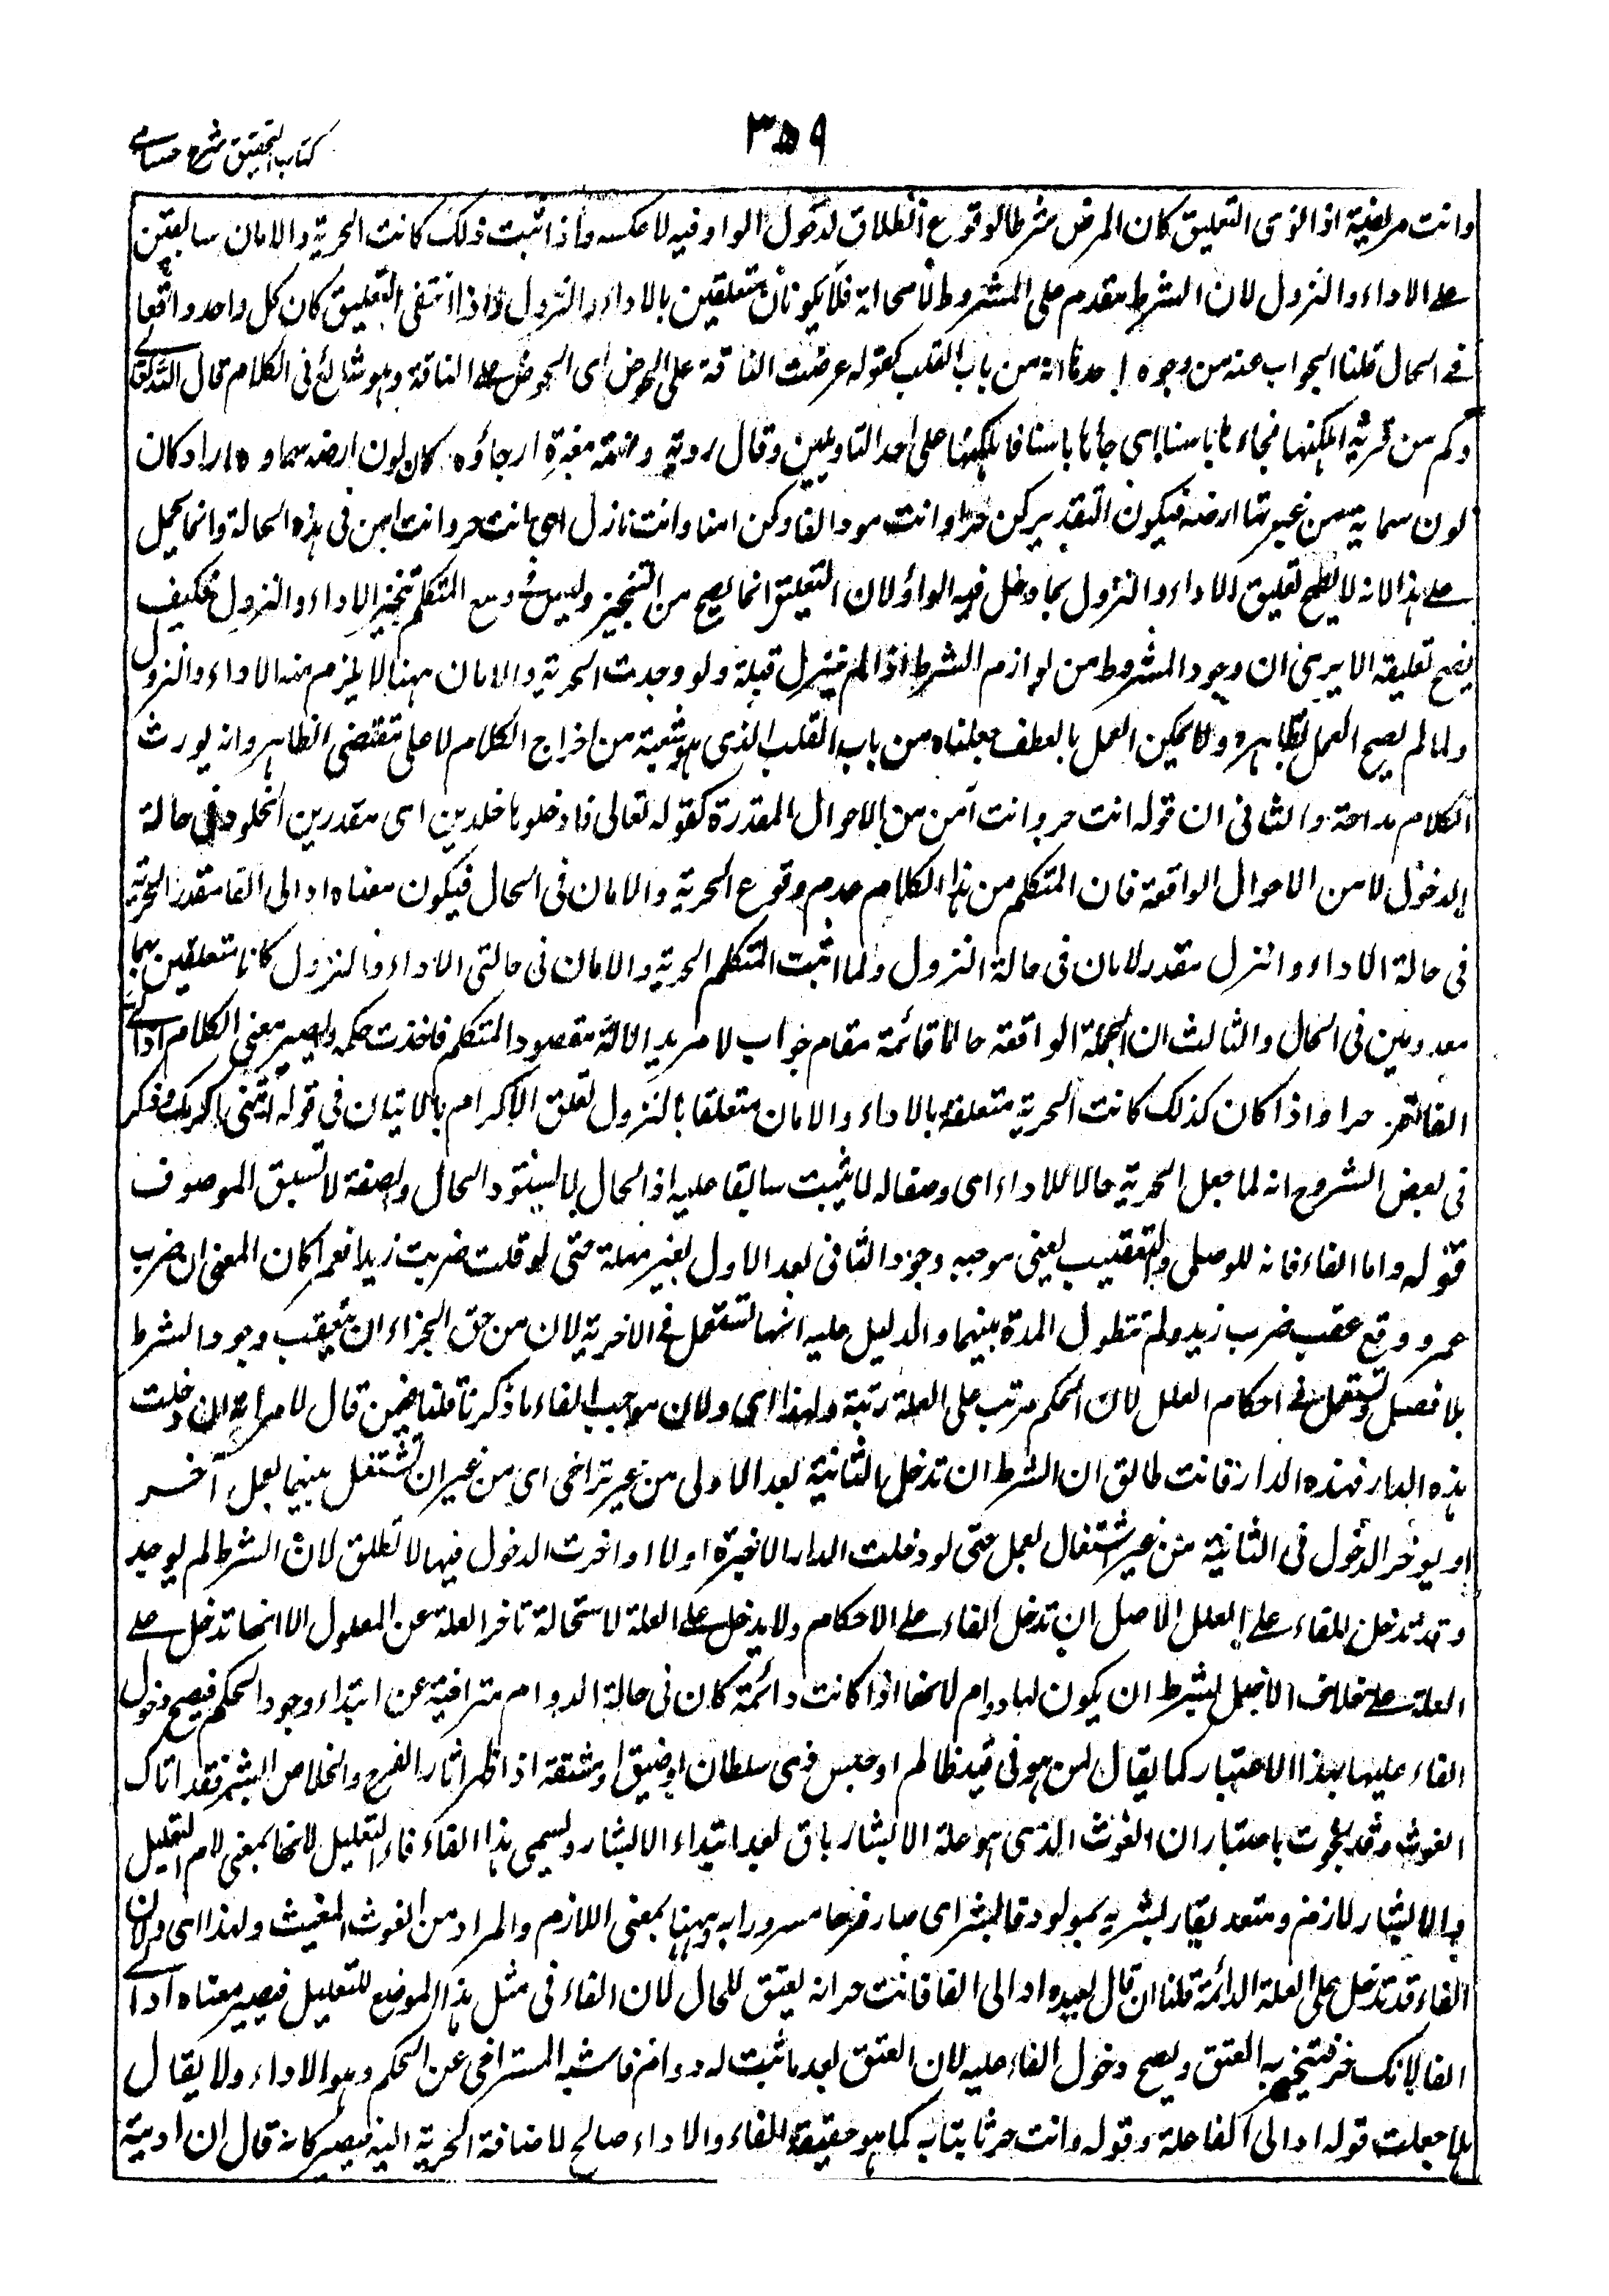 ٣٥٩
كتاب التحقيق شرح حسامى
وانت مريضة اذا نوى التعليق كان المرض شرطا لوقوع الطلاق لدخول الواو فيه لا عكسه واذا ثبت ذلك كانت الحرية والامان سابقين
على الاداء والنزول لان الشرط مقدم على المشروط لا محالة فلا يكونان متعلقين بالاداء والنزول واذا انتفى التعليق كان كل واحد واقعا
فى الحال قلنا الجواب عنه من وجوه احدها انه من باب القلب كقوله عرضت الناقة على الحوض اى الحوض على الناقة وهو شائع فى الكلام قال الله تعالى
وكم من قرية اهلكناها فجاءها باسنا اى جاءها باسنا فاهلكناها على احد التاويلين وقال روبة ومهمه مغبرة ارجاؤه كان لون ارضه سماوه اراد كان
لون سمائه من غبرتها ارضه فيكون التقدير كن حرا وانت مود الفا وكن امنا وانت نازل اى انت حر وانت امن فى هذه الحالة وانما يحمل
على هذا لانه لا يصح تعليق الاداء والنزول بما دخل فيه الواو لان التعليق انما يصح من التنجيز وليس فى وسع المتكلم تنجيز الاداء والنزول فكيف
يصح تعليقه الا يرى ان وجود المشروط من لوازم الشرط اذا لم ينزل قبله ولو وجدت الحرية والامان ههنا لا يلزم منه الاداء والنزول
ولما لم يصح العمل بظاهره ولا يمكن العمل بالعطف جعلناه من باب القلب الذى هو شعبة من اخراج الكلام لا على مقتضى الظاهر وانه يورث
الكلام ملاحة والثانى ان قوله انت حر وانت آمن من الاحوال المقدرة كقوله تعالى فادخلوها خلدين اى مقدرين الخلود فى حالة
الدخول لا من الاحوال الواقعة فان المتكلم من هذا الكلام عدم وقوع الحرية والامان فى الحال فيكون معناه اد الى الفا مقدر الحرية
فى حالة الاداء وانزل مقدر الامان فى حالة النزول ولما اثبت المتكلم الحرية والامان فى حالتى الاداء والنزول كانا متعلقين بهما
معدومين فى الحال والثالث ان الجملة الواقعة حالا قائمة مقام جواب الامر بدلالة مقصود المتكلم فاخذت حكمه ويصير معنى الكلام اد الى
الفا تصر حرا واذا كان كذلك كانت الحرية متعلقة بالاداء والامان متعلقا بالنزول تعلق الاكرام بالاتيان فى قوله ائتنى اكرمك وذكر
فى بعض الشروح انه لما جعل الحرية حالا للاداء اى وصفا له لا يثبت سابقا عليه اذ الحال لا يسبق ذا الحال والصفة لا تسبق الموصوف
قوله واما الفاء فانه للوصل والتعقيب يعنى موجبه وجود الثانى بعد الاول بغير مهلة حتى لو قلت ضربت زيدا فعمرا كان المعنى ان ضرب
عمرو وقع عقيب ضرب زيد ولم تتطول المدة بينهما والدليل عليه انها تستعمل فى الاجزية لان من حق الجزاء ان يتعقب وجود الشرط
بلا فصل وتستعمل فى احكام العلل لان الحكم مرتب على العلة رتبة ولهذا اى ولان موجب الفاء ما ذكرنا قلنا فيمن قال لامرأته ان دخلت
هذه الدار فهذه الدار فانت طالق ان الشرط ان تدخل الثانية بعد الاولى من غير تراخى اى من غير ان تشتغل بينهما بعمل آخر
او يوخر الدخول فى الثانية من غير اشتغال بعمل حتى لو دخلت الدار الاخيرة اولا او اخرت الدخول فيها لا تطلق لان الشرط لم يوجد
وقد تدخل الفاء على العلل الاصل ان تدخل الفاء على الاحكام ولا يدخل على العلة لاستحالة تاخر العلة عن المعلول الا انها تدخل على
العلة على خلاف الاصل بشرط ان يكون لها دوام لانها اذا كانت دائمة كان فى حالة الدوام متراخية عن ابتداء وجود الحكم فيصح دخول
الفاء عليها بهذا الاعتبار كما يقال لمن هو فى قيد ظالم او حبس ذى سلطان او ضيق او مشقة اذا ظهر اثار الفرج والخلاص ابشر فقد اتاك
الغوث وقد نجوت باعتبار ان الغوث الذى هو علة الابشار باق بعد ابتداء الابشار ويسمى هذا الفاء فاء التعليل لانها بمعنى لام التعليل
والابشار لازم ومتعد يقار بشرته بمولود فابشر اى صار فرحا مسرورا به وههنا بمعنى اللازم والمراد من الغوث المغيث ولهذا اى ولان
الفاء قد تدخل على العلة الدائمة قلنا ان قال لعبده اد الى الفا فانت حر انه يعتق للحال لان الفاء فى مثل هذا الموضع للتعليل فيصير معناه اد الى
الفا لانك حر فتنجز به العتق ويصح دخول الفاء عليه لان العتق بعد ما ثبت له دوام فاشبه المتراخى عن الحكم وهو الاداء ولا يقال
هلا جعلت قوله اد الى الفا علة وقوله وانت حر ثابتا به كما هو حقيقة الفاء والاداء صالح لاضافة الحرية اليه فيصير كانه قال ان اديت